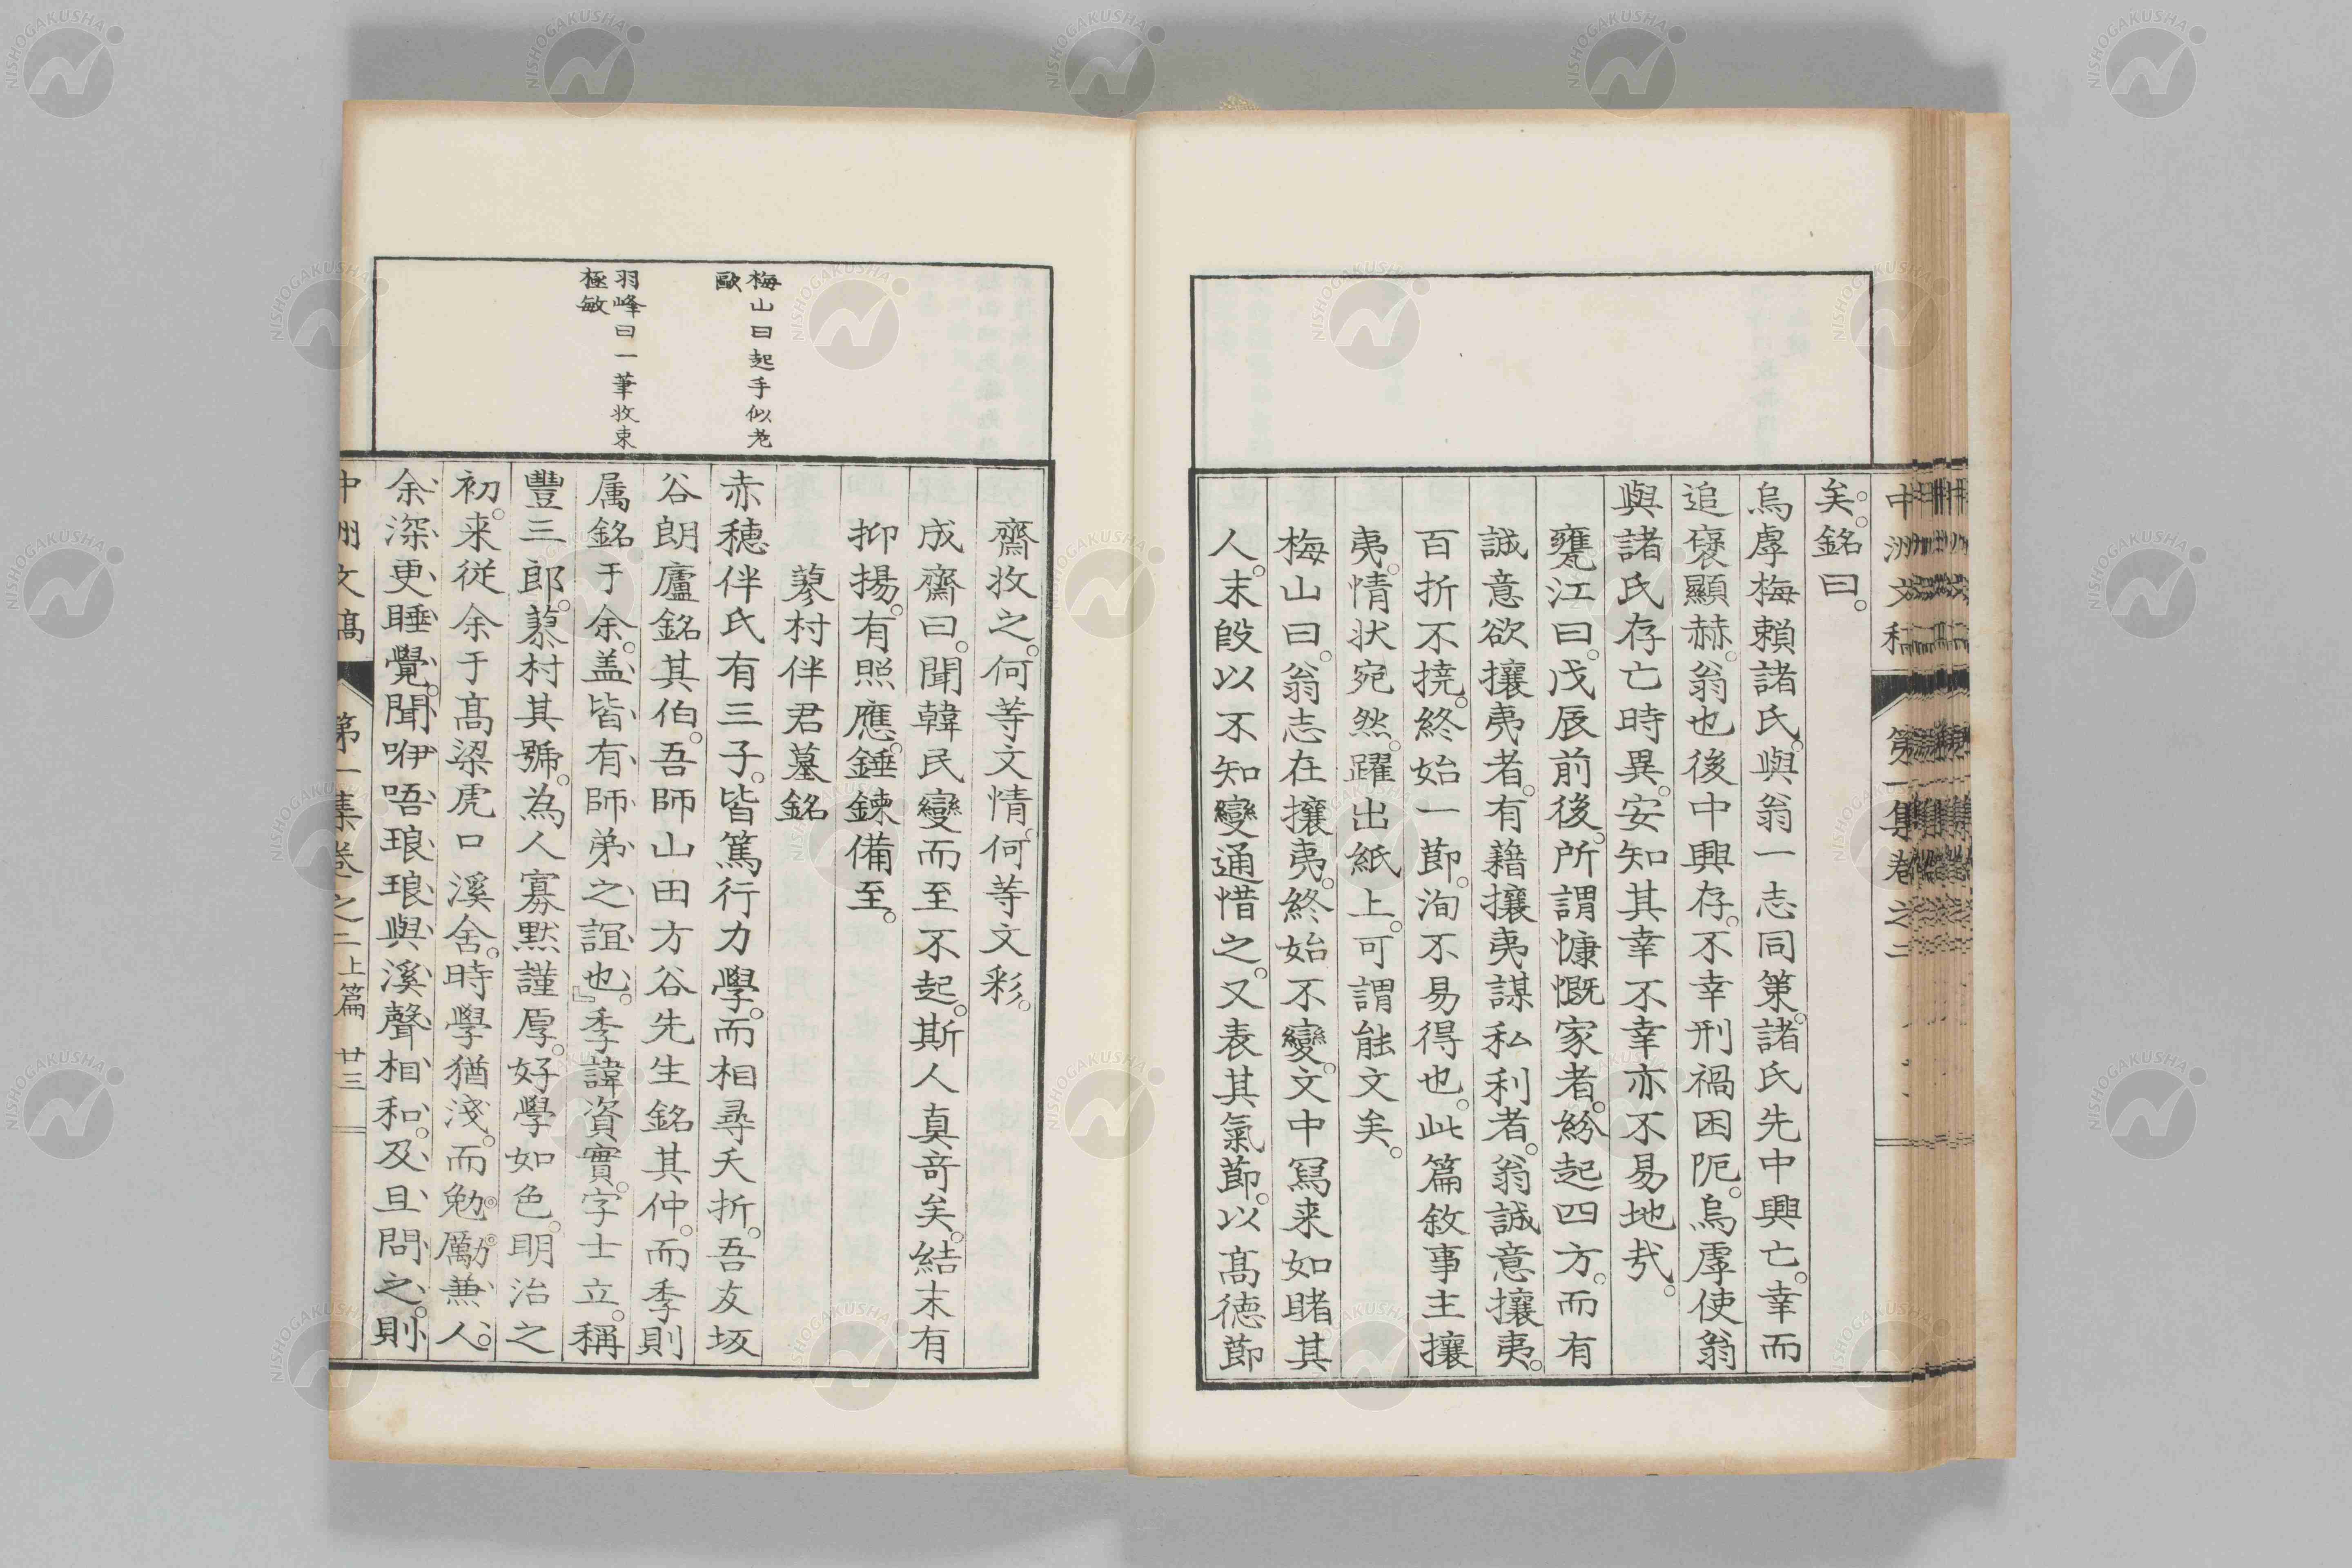 中洲文稿 第一集卷之二
矣。銘曰。
烏虖梅賴諸氏。與翁一志同策。諸氏先中興亡。幸而
追襃顯赫。翁也後中興存。不幸刑禍困阨。烏虖使翁
與諸氏存亡時異。安知其幸不幸亦不易地哉。
甕江曰。戊辰前後。所謂慷慨家者。紛起四方。而有
誠意欲攘夷者。有藉攘夷謀私利者。翁誠意攘夷。
百折不撓。終始一節。洵不易得也。此篇敘事主攘
夷。情状宛然。躍出紙上。可謂能文矣。
梅山曰。翁志在攘夷。終始不變。文中冩来如睹其
人。末段以不知變通惜之。又表其氣節。以髙德節
齋收之。何等文情。何等文彩。
成齋曰。聞韓民變而至不起。斯人真奇矣。結末有
抑揚。有照應。錘鍊備至。
蓼村伴君墓銘
梅山曰起手似老
歐
赤穗伴氏有三子。皆篤行力學。而相尋夭折。吾友坂
谷朗廬銘其伯。吾師山田方谷先生銘其仲。而季則
羽峰曰一筆收束
極敏
属銘于余。盖皆有師弟之誼也。』季諱資實。字士立。稱
豐三郎。蓼村其號。為人寡黙謹厚。好學如色。明治之
初。来従余于髙梁虎口溪舍。時學猶淺。而勉勵兼人。
余深更睡覺。聞咿唔琅琅與溪聲相和。及旦問之。則
中洲文稿 第一集卷之二 上篇 廿三